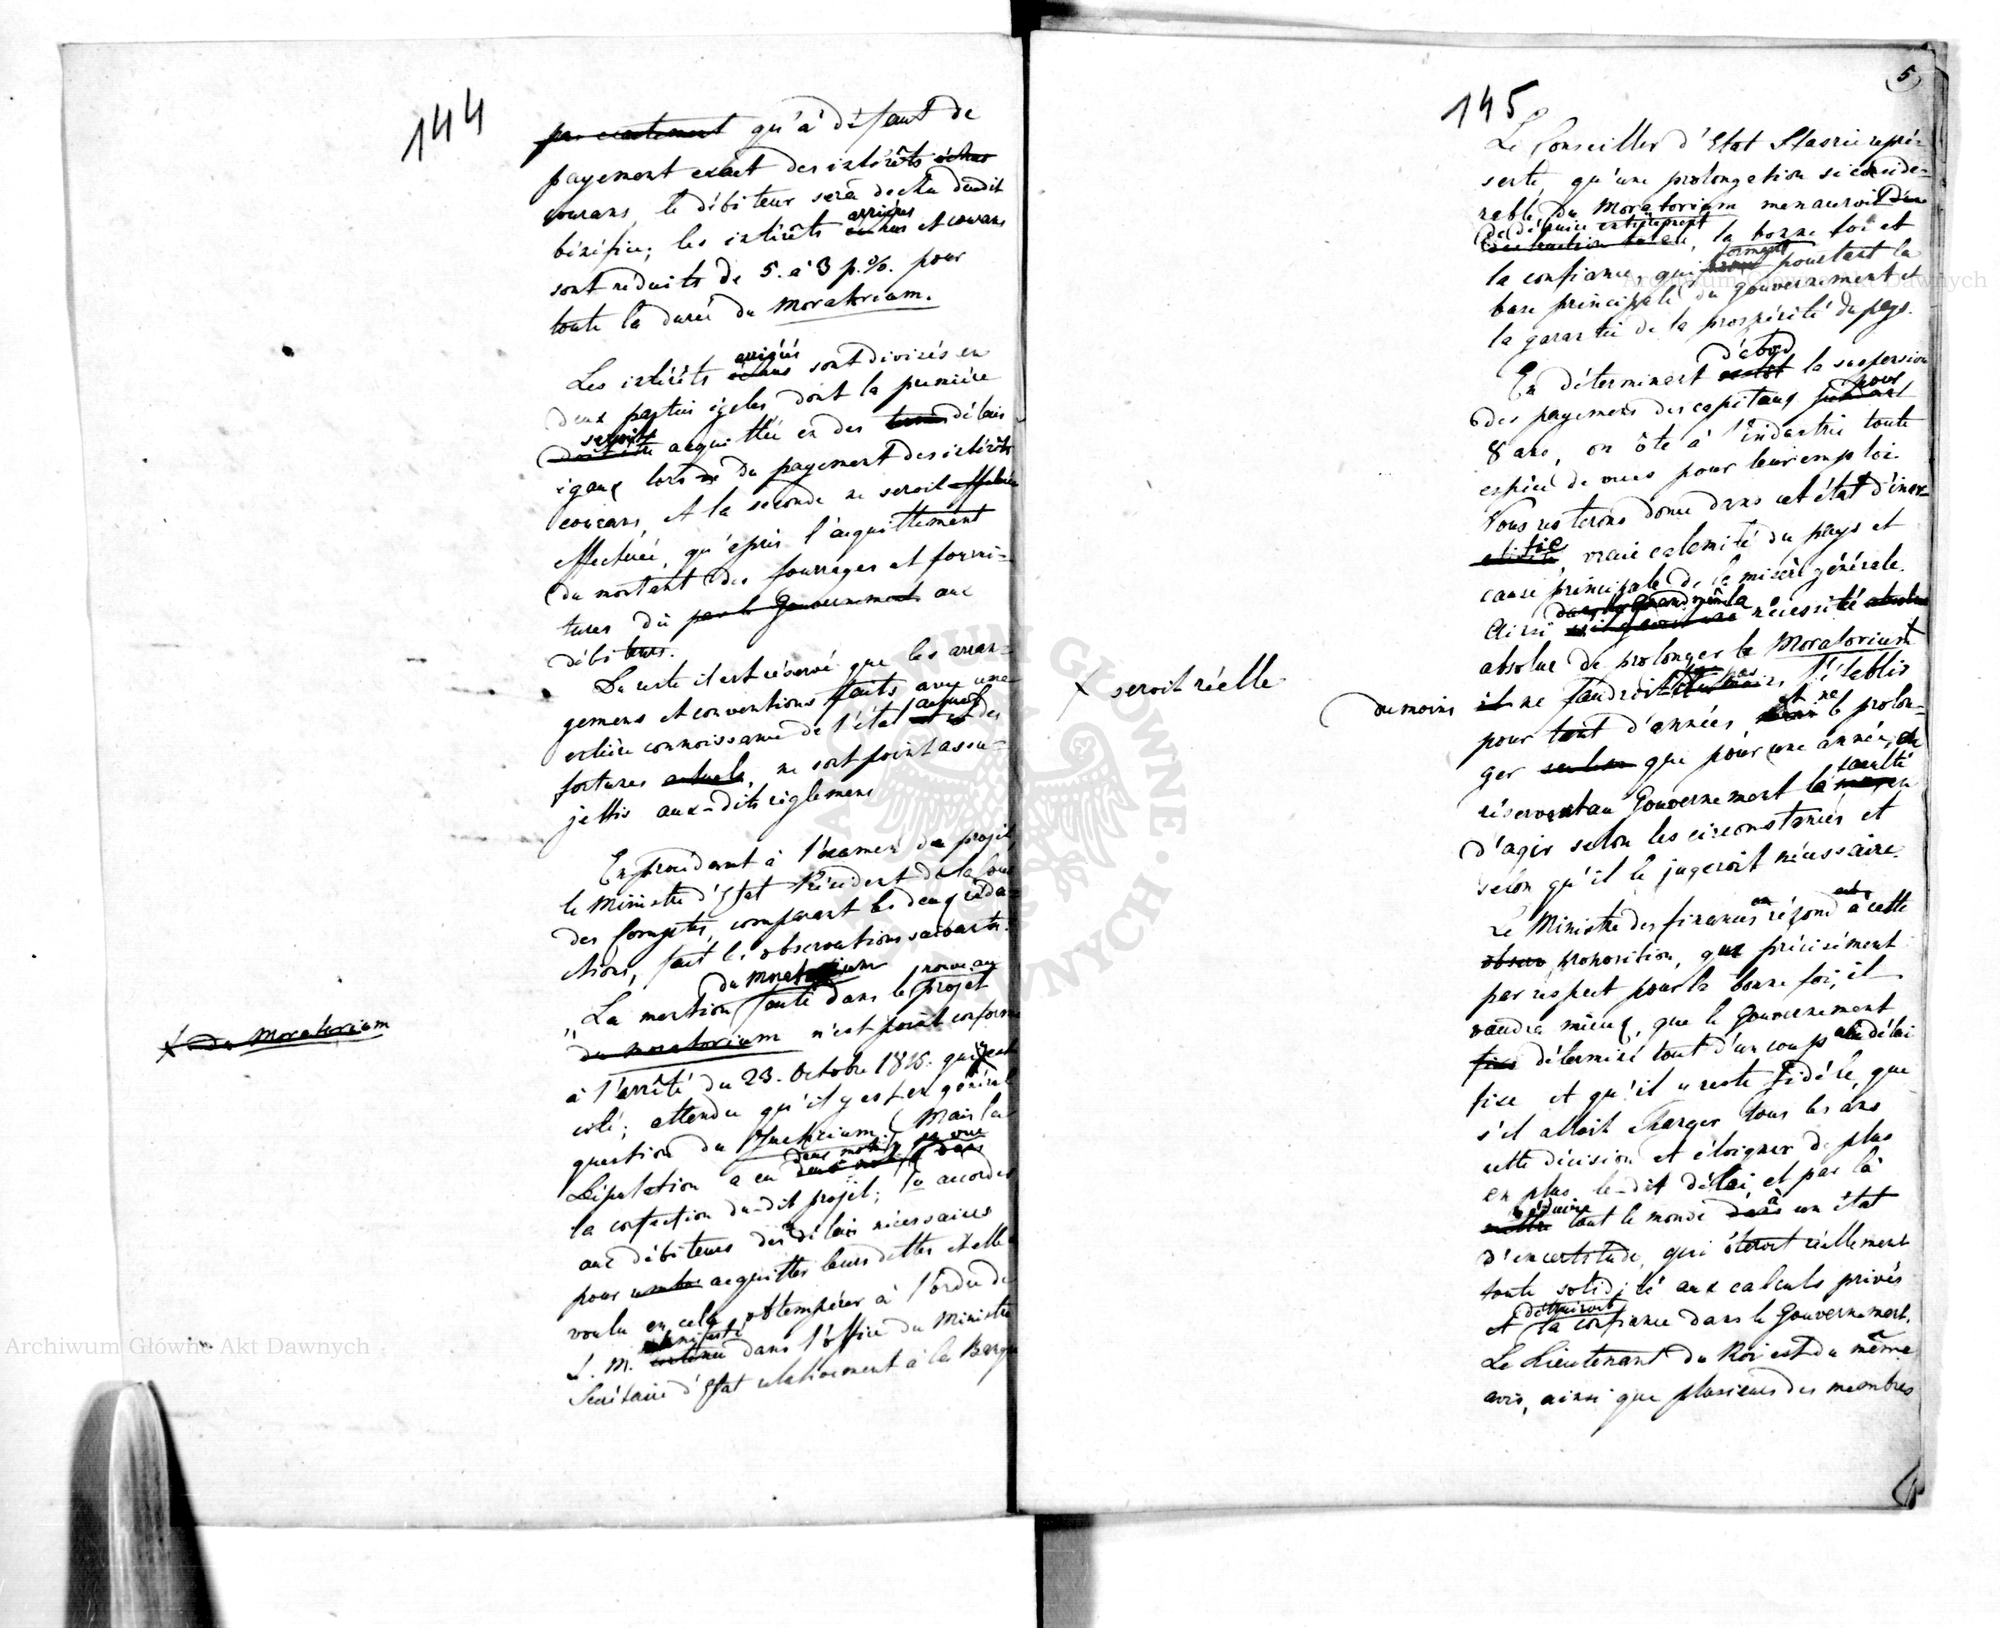 144
par exactement qu'à défaut de
payement exact des intérêts échus
courans, le débiteur sera dechu dudit
arriérés
bénéfice; les intérêts échus et courans
sont réduits de 5. à 3 p.%. pour
toute la durée du Moratorium.
arriérés
Les intérêts échus sont divisés en
deux parties égales, dont la première
seroit
doit être acquittée en des termes délais
égaux lors de du payement des intérêts
courans, et la seconde ne seroit
effectuée, qu'après l'acquittement
du montant des fourrages et fourni-
tures dû par le Gouvernement aux
débiteurs.
Du reste il est réservé que les arran-
gemens et conventions faits avec une
actuel
entière connoissance de l'état des
fortunes actuels, ne sont point assu-
jettis aux-dits règlemens
En procédant à l'examen du projet,
le Ministre d'Etat Président de la Cour
des Comptes, comparant les deux rédac-
tions, fait les observations suivantes:
du Moratorium nouveau
„La mention faite dans le projet
du moratorium n'est point conforme
X du Moratorium
à l'arrêté du 23. Octobre 1815. qui y est
cité; attendu qu'il y est en général
question du . Mais la
deux motifs en vue
Députation a eu dans
la confection du-dit projet; 1º accorder
aux débiteurs des délais nécessaires
pour acquitter leurs dettes et elle a
voulu en cela obtempérer à l'ordre de
manifesté
S. M. contenu dans l'office du Ministre
Secrétaire d'Etat relativement à la Banque
145
5
Le Conseiller d'Etat Stasric repré-
sente, qu'une prolongation si considé-
rable, du Moratorium menaceroit d'une
de détruire entièrement
destruction totale, la bonne foi et
forment
la confiance, qui pourtant la
base principale du gouvernement et
la garantie de la prospérité du pays.
d'abord
En déterminant la suspension
pour
des payemens des capitaux pendant
8 ans, on ôte à l'industrie toute
espèce de vues pour leur emploi.
Nous resterons donc dans cet état d'iner-
tie
, vraie calamité du pays et
cause principale de la misère générale.
Ainsi quand même la nécessité absolue
absolue de prolonger le Moratorium X
X seroit réelle
du moins il ne faudroit pas l'établir
et ne
pour tant d'années le prolon-
ger seulement que pour une année, en
faculté
réservant au Gouvernement la
d'agir selon les circonstances et
selon qu'il le jugeroit nécessaire.
Le Ministre des finances répond à cette
proposition, que précisément
par respect pour la bonne foi, il
vaudra mieux, que le Gouvernement
fixe détermine tout d'un coup un délai
fixe et qu'il y reste fidèle, que
s'il alloit changer tous les ans
cette décision et éloigner de plus
en plus le-dit délai et par là
réduire à
mettre tout le monde dans un état
d'incertitude, qui ôteroit réellement
toute solidité aux calculs privés
détruiroit
et la confiance dans le Gouvernement.
Le Lieutenant du Roi est du même
avis, ainsi que plusieurs des membres
Archiwum Główne Akt Dawnych
Archiwum Główne Akt Dawnych
ARCHIWUM GŁÓWNE AKT DAWNYCH